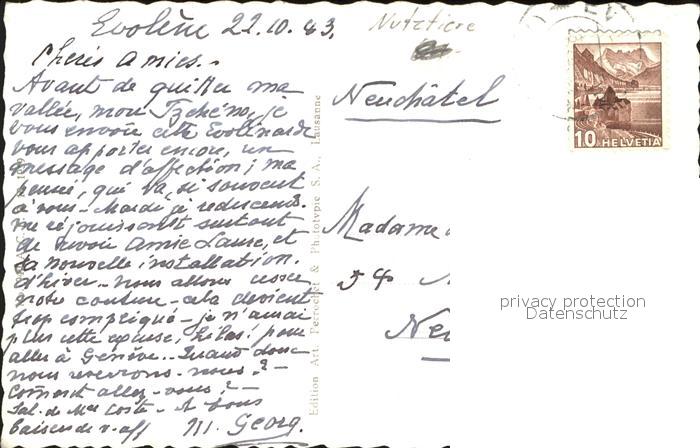 Evolène 22.10.43.
Nutztiere
Chers amies.-
Avant de quitter ma
vallée, mon Tzcheno, je
vous envoie cette Evolénarde
vous apporter encore, un
message d'affection; ma
pensée, qui va, si souvent
à vous - Mardi je redescends.
me réjouissant surtout
de revoir Amie Laure, et
sa nouvelle installation.
d'hiver - nous allons cesser
notre couture - cela devient
trop compliqué - je n'aurai
plus cette excuse, hélas! pour
aller à Genève - Quand donc
nous reverrons-nous? -
Comment allez-vous? -
Sal. de Mes Coste - A vous
baisers de v. aff M. Georg.
Edition Art. Perrochet & Phototypie S. A., Lausanne
10 HELVETIA
Neuchâtel
Madame
54
Neu
privacy protection
Datenschutz